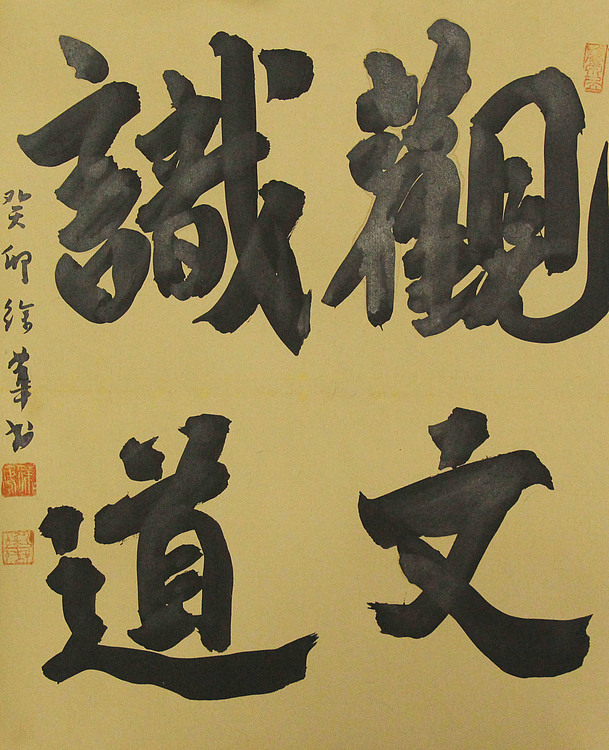 觀文
識道
癸卯徐華书